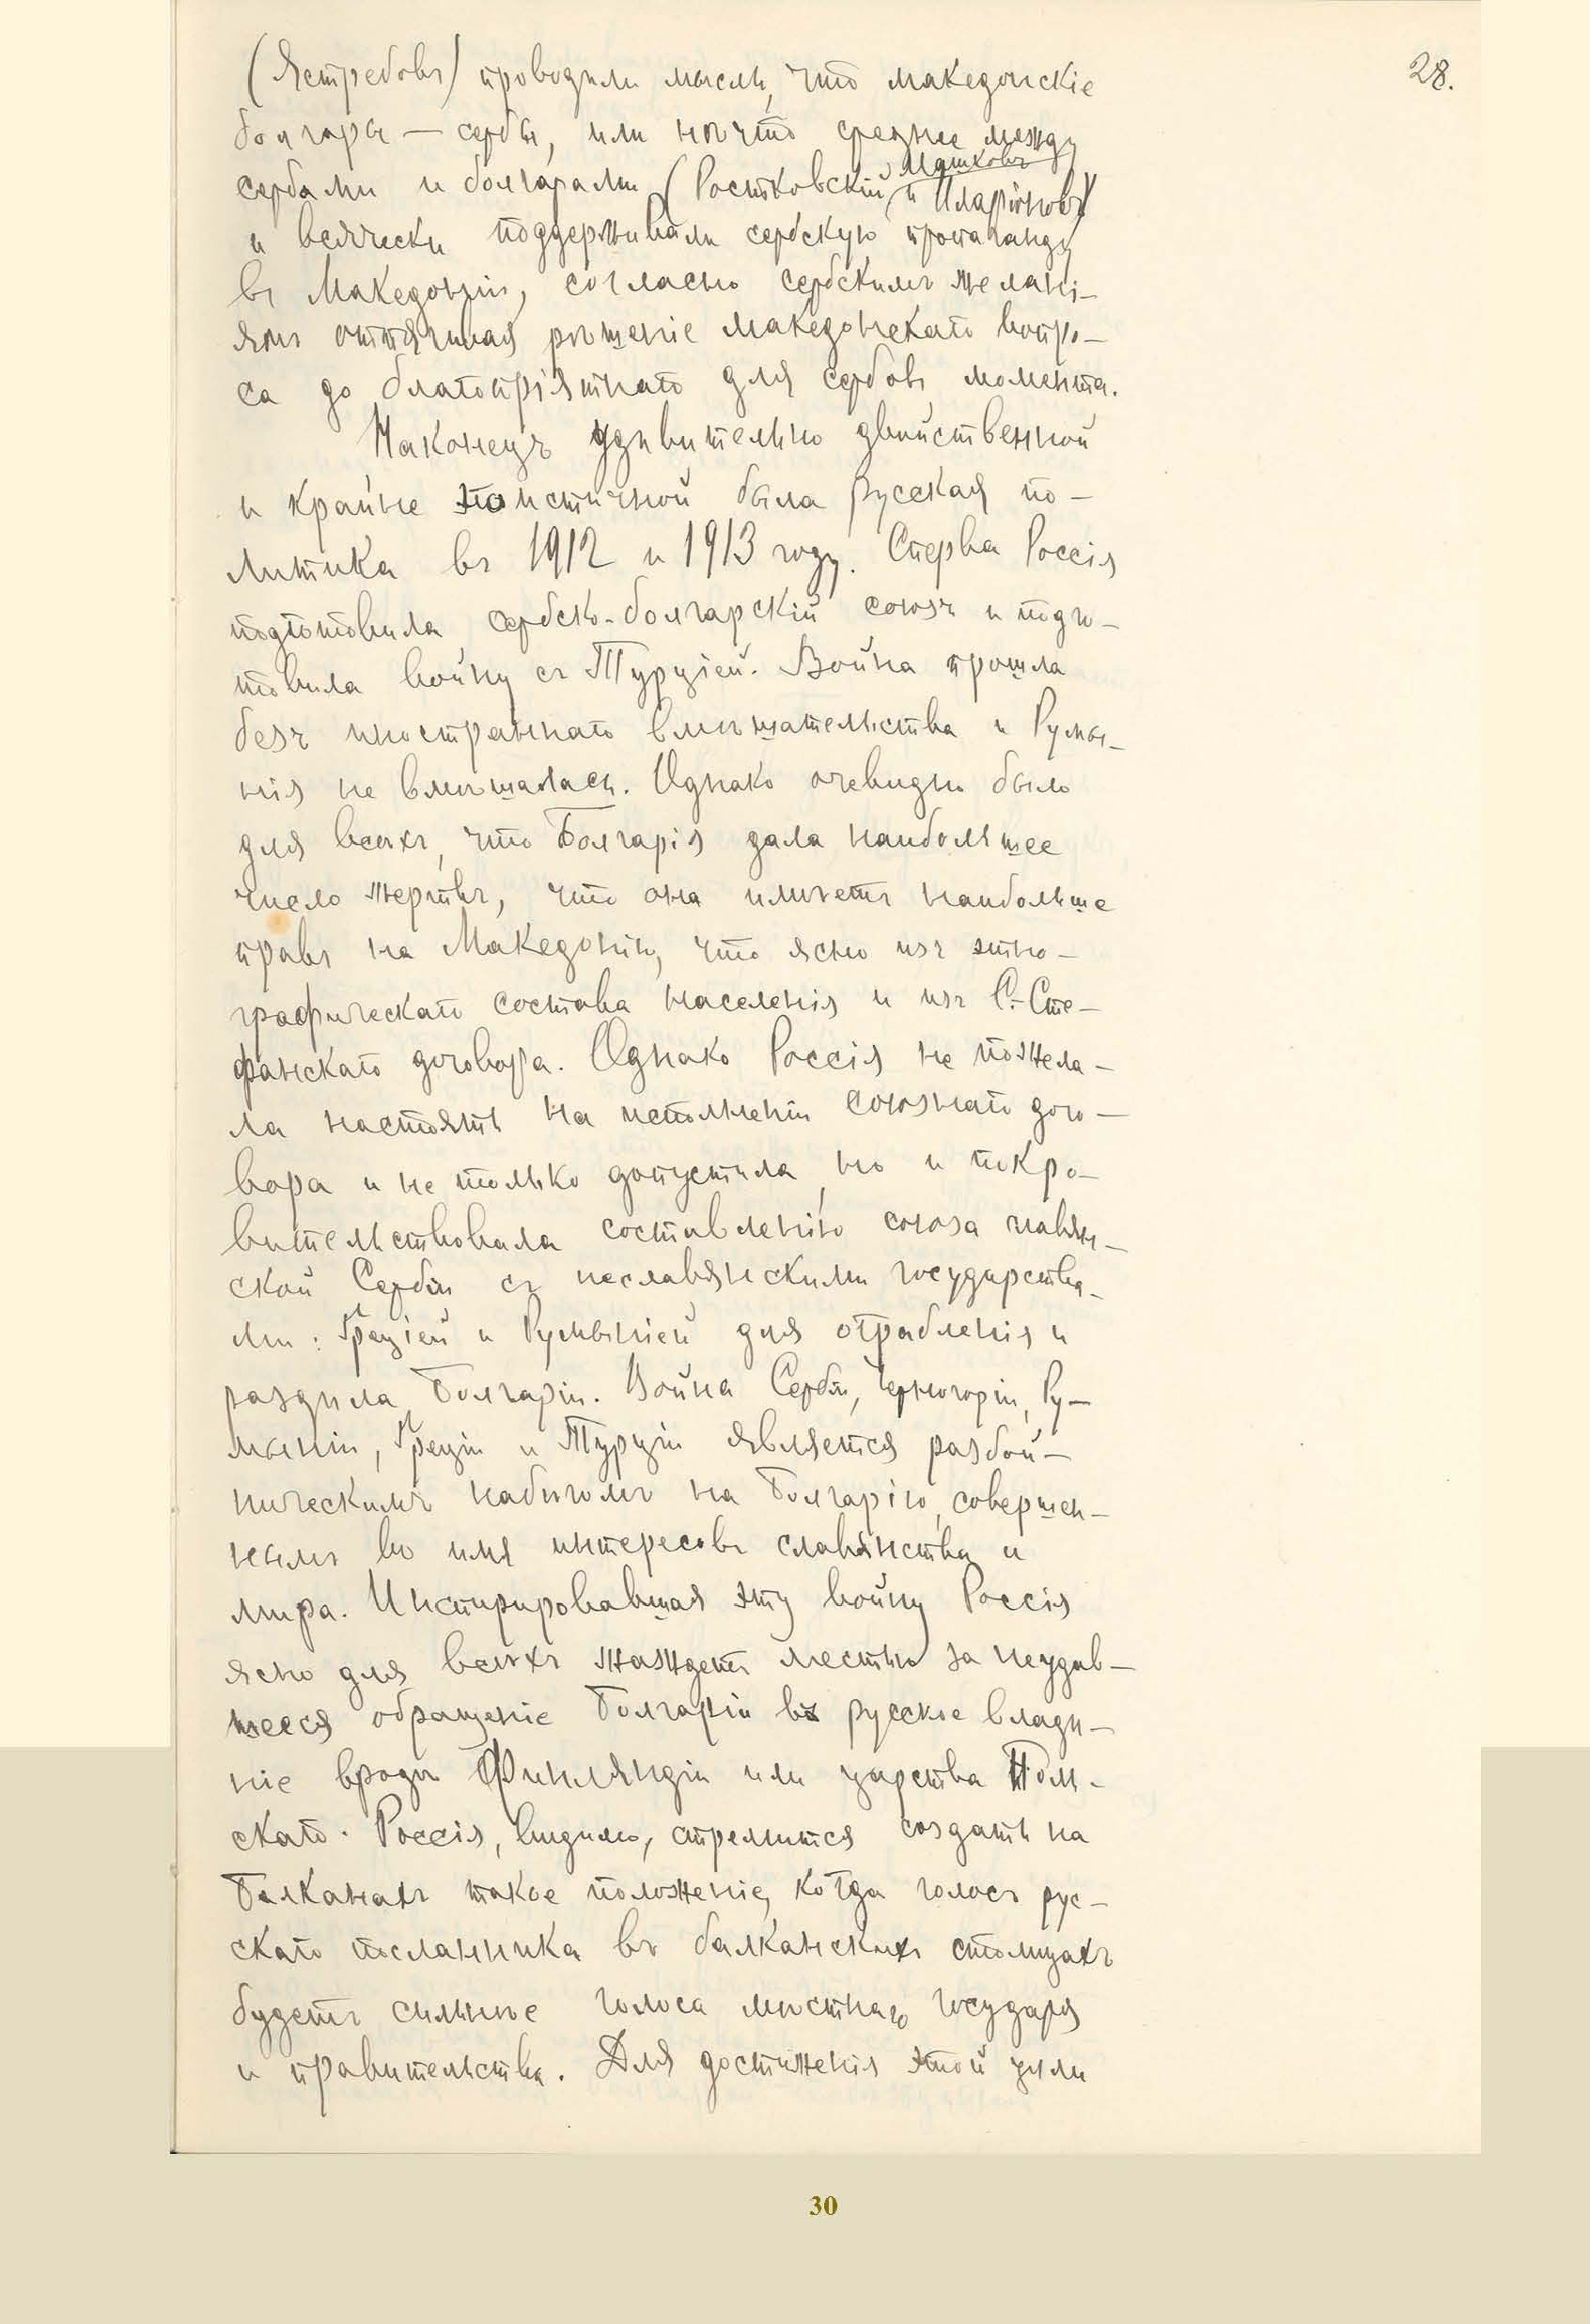 28.
(Ястребовъ) проводили мысли, что македонскіе
болгары — сербы, или нѣчто среднее между
сербами и болгарами (Ростковскій, Машковъ и Иларіоновъ)
и всячески поддерживали сербскую пропаганду
въ Македоніи, согласно сербскимъ желані-
ямъ оттягивая рѣшеніе македонскаго вопро-
са до благопріятнаго для сербовъ момента.
Наконецъ удивительно двойственной
и крайне эгоистичной была русская по-
литика въ 1912 и 1913 году. Сперва Россія
подготовила сербско-болгарскій союзъ и подго-
товила войну съ Турціей. Война прошла
безъ иностраннаго вмѣшательства и Румы-
нія не вмѣшалась. Однако очевидно было
для всѣхъ, что Болгарія дала наибольшее
число жертвъ, что она имѣетъ наибольше
правъ на Македонію, что ясно изъ этно-
графическаго состава населенія и изъ С.-Сте-
фанскаго договора. Однако Россія не пожела-
ла настоять на исполненіи союзнаго дого-
вора и не только допустила, но и покро-
вительствовала составленію союза славян-
ской Сербіи съ неславянскими государства-
ми: Греціей и Румыніей для ограбленія и
раздѣла Болгаріи. Война Сербіи, Черногоріи, Ру-
мыніи, Греціи и Турціи является разбой-
ническимъ набѣгомъ на Болгарію, совершен-
нымъ во имя интересовъ славянства и
мира. Инспирировавшая эту войну Россія
ясно для всѣхъ жаждетъ местью за неудав-
шееся обращеніе Болгаріи въ русское владѣ-
ніе вродѣ Финляндіи или царства Поль-
скаго. Россія, видимо, стремится создать на
Балканахъ такое положеніе, когда голосъ рус-
скаго посланника въ балканскихъ столицахъ
будетъ сильнѣе голоса мѣстнаго государя
и правительства. Для достиженія этой цѣли
30